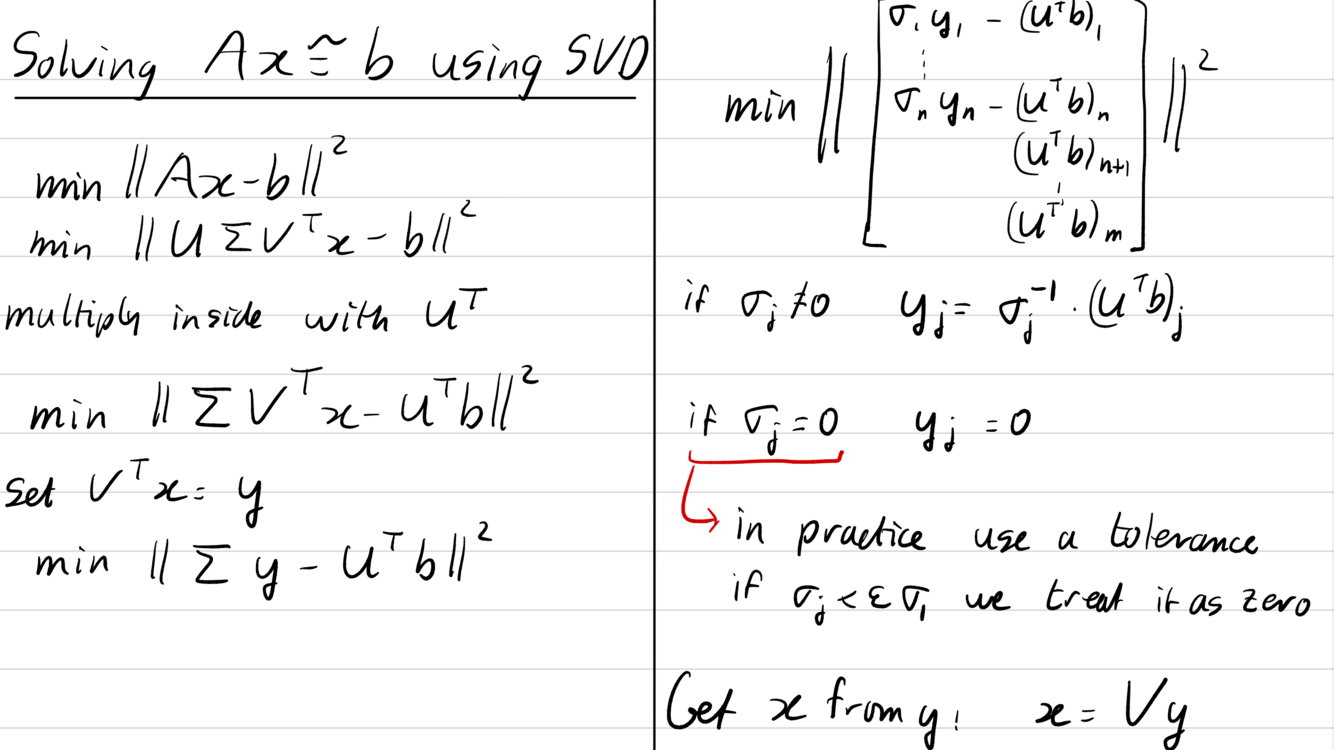 Solving Ax ≅ b using SVD
min ||Ax-b||²
min ||UΣVᵀx - b||²
multiply inside with Uᵀ
min ||ΣVᵀx - Uᵀb||²
set Vᵀx = y
min ||Σy - Uᵀb||²
σ₁y₁ - (Uᵀb)₁
⋮
min || [σₙyₙ - (Uᵀb)ₙ] ||²
(Uᵀb)ₙ₊₁
⋮
(Uᵀb)ₘ
if σⱼ ≠ 0 yⱼ = σⱼ⁻¹ · (Uᵀb)ⱼ
if σⱼ = 0 yⱼ = 0
→ in practice use a tolerance
if σⱼ < εσ₁ we treat it as zero
Get x from y: x = Vy